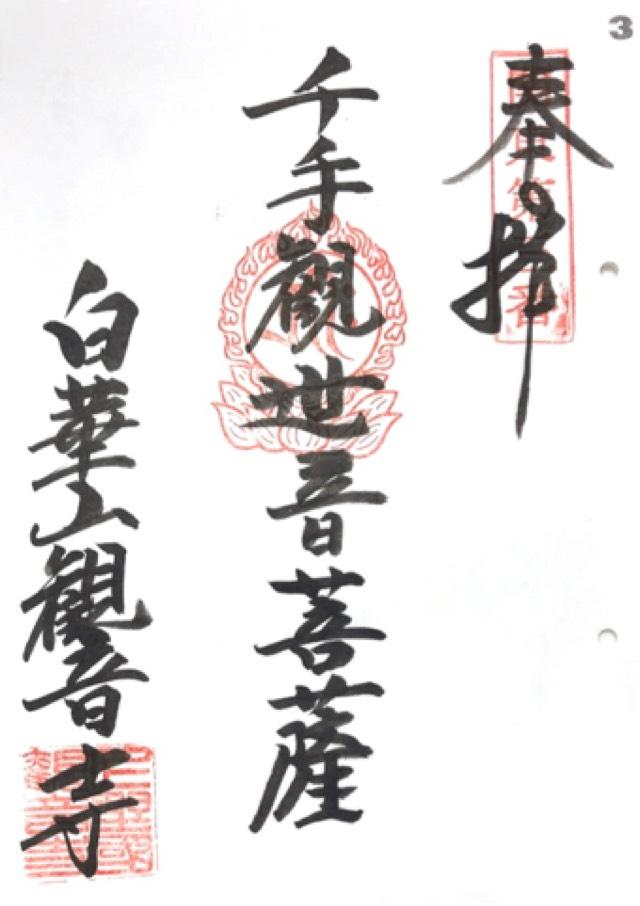 3
奉拝
千手觀世音菩薩
白華山観音寺